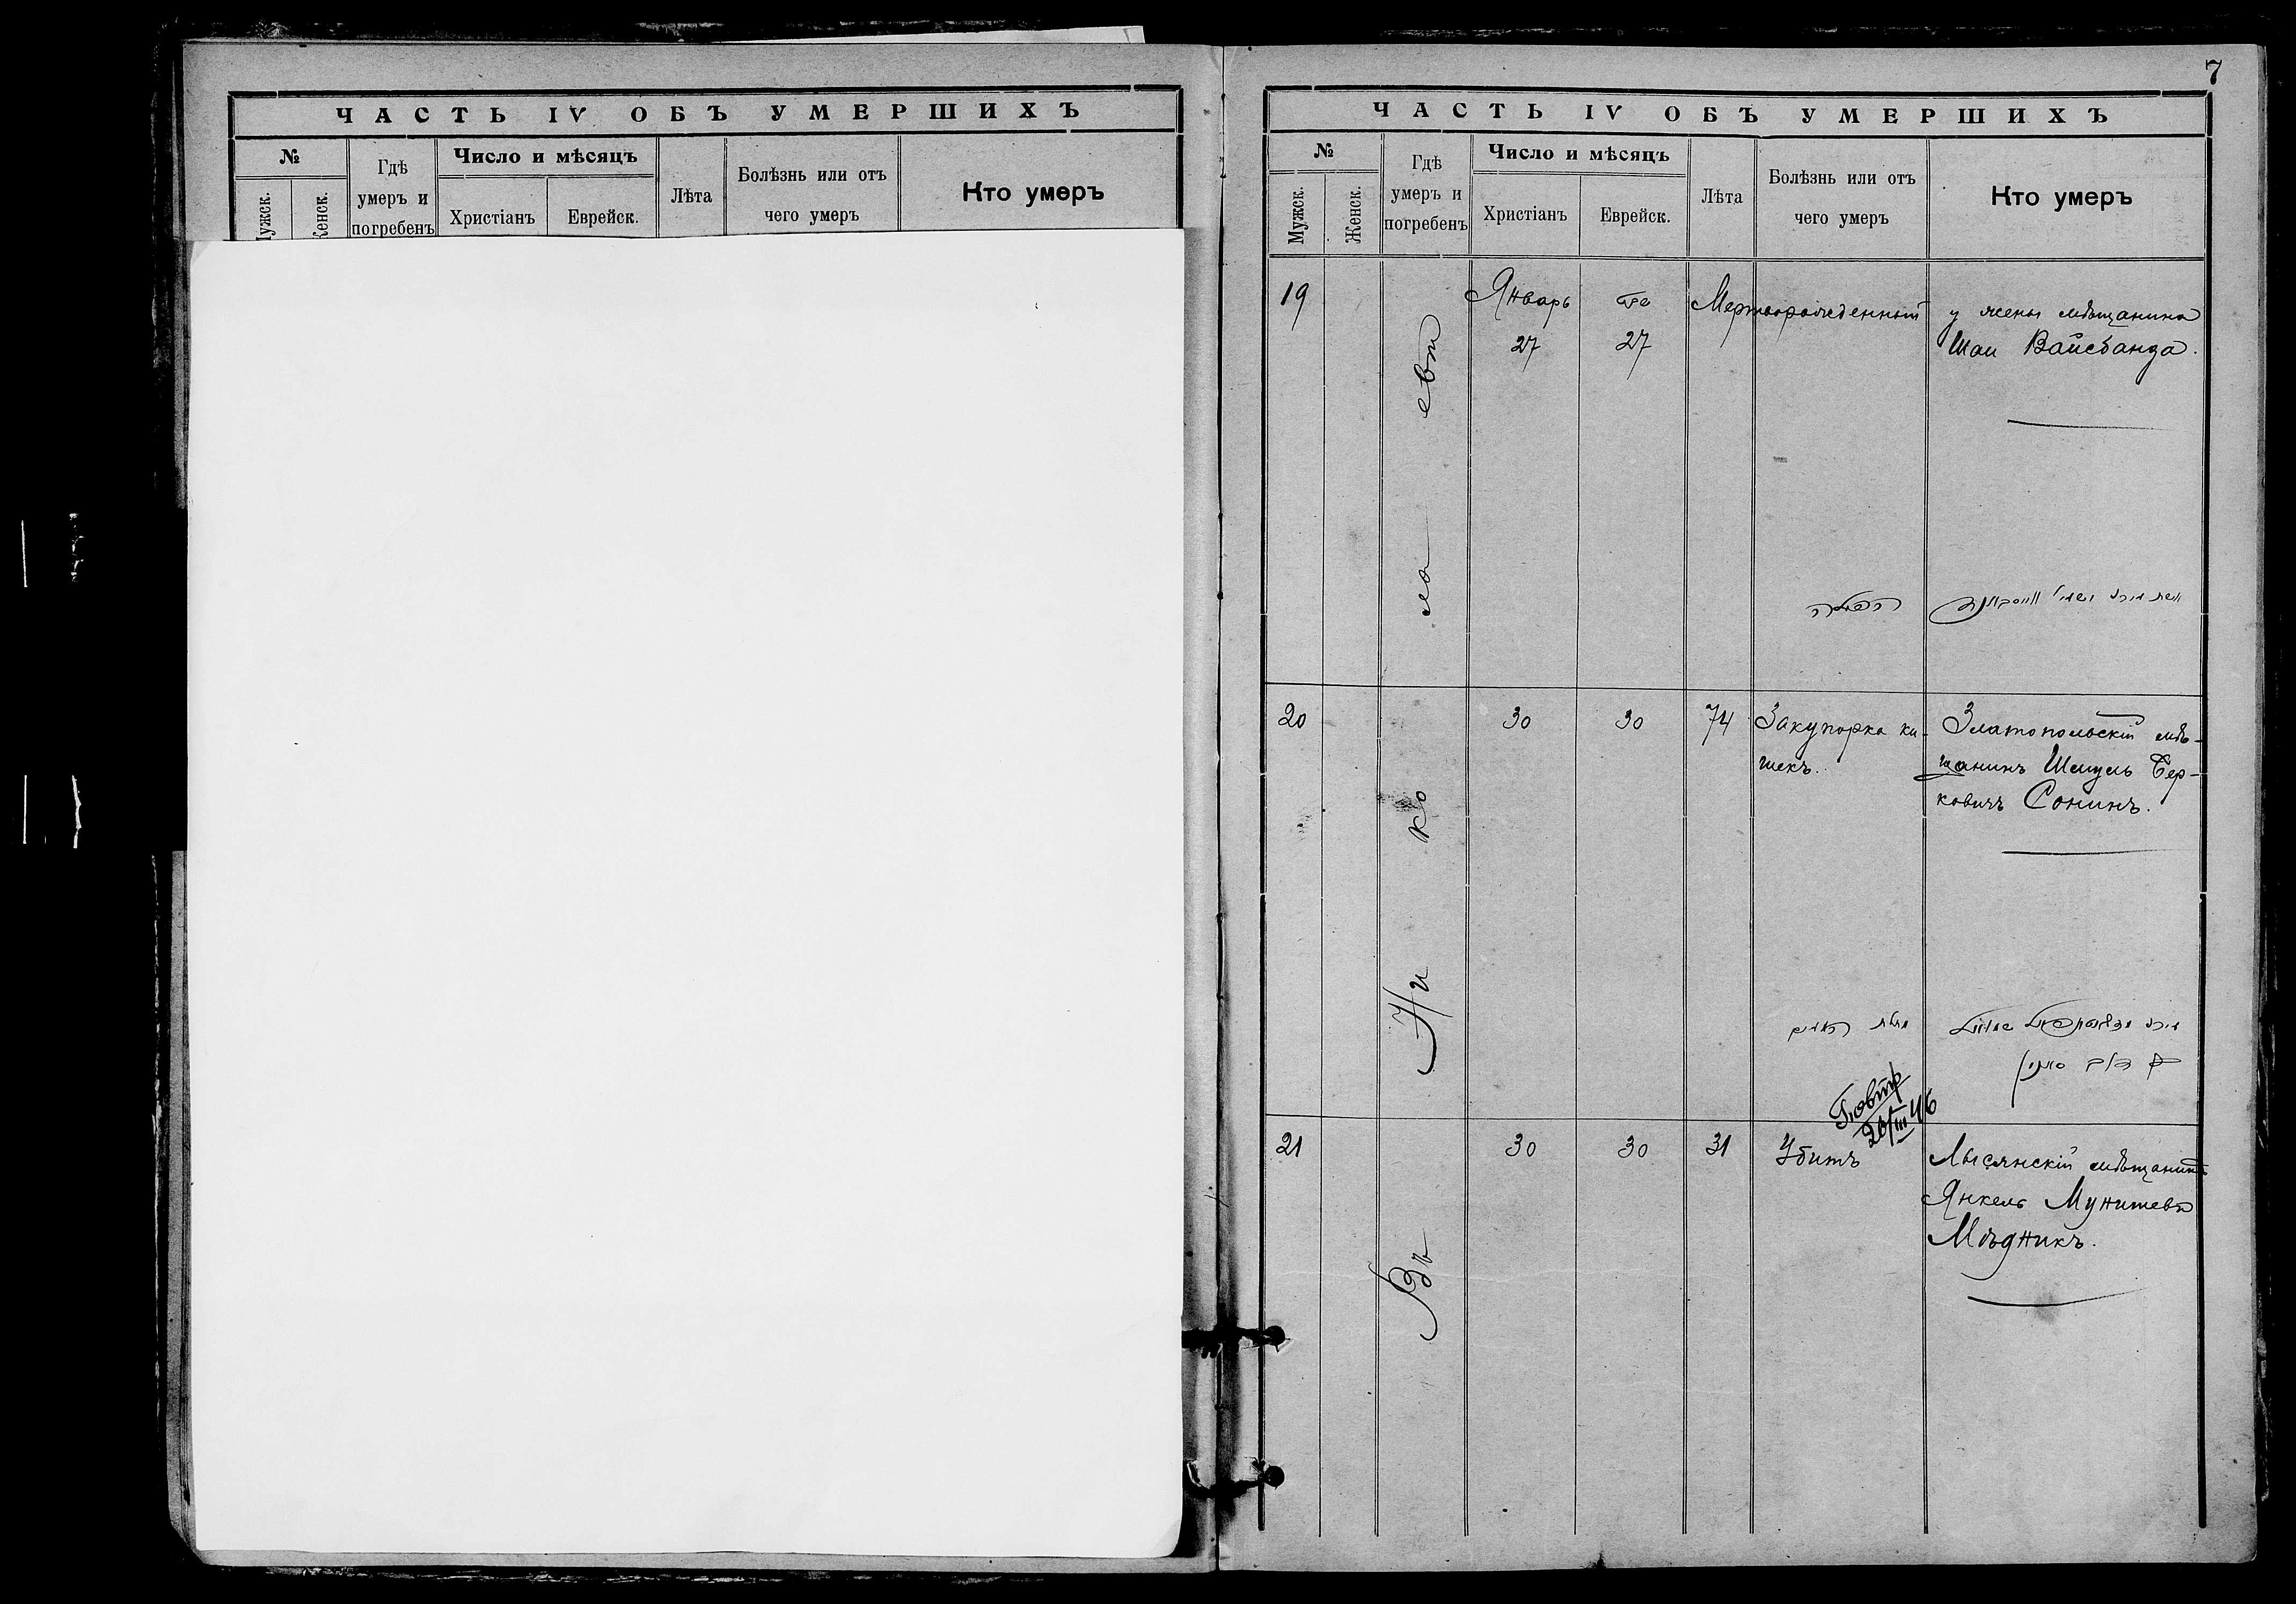 ЧАСТЬ IV ОБЪ УМЕРШИХЪ
№
Число и мѣсяцъ
Гдѣ
умеръ и
погребенъ
Христіанъ
Еврейск.
Лѣта
Болѣзнь или отъ
чего умеръ
Кто умеръ
7
ЧАСТЬ IV ОБЪ УМЕРШИХЪ
№
Мужск.
Женск.
Гдѣ
умеръ и
погребенъ
Число и мѣсяцъ
Христіанъ
Еврейск.
Лѣта
Болѣзнь или отъ
чего умеръ
Кто умеръ
Въ Николаевѣ
19
Январь
27
27
Мертворожденный
у жены мѣщанина
Шаи Вайсбанда.
20
30
30
74
Закупорка ки-
шекъ.
Златопольскій мѣ-
щанинъ Шмуль Бер-
ковичъ Сонинъ.
21
30
30
31
20/III 46
Убитъ
Лысянскій мѣщанинъ
Янкель Мунишевъ
Мѣдникъ.